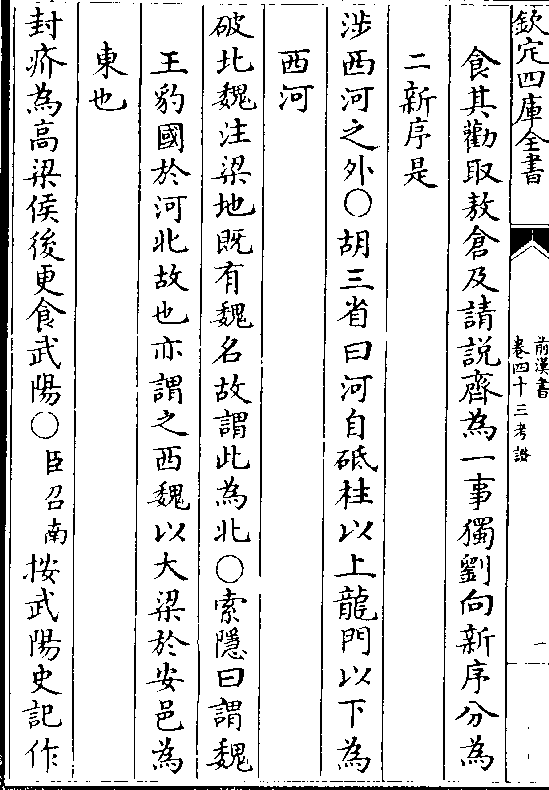 欽定四庫全書
前漢書
卷四十三考證
一
食其勸取敖倉及請説齊為一事獨劉向新序分為
二新序是
涉西河之外○胡三省曰河自砥柱以上龍門以下為
西河
破北魏注梁地既有魏名故謂此為北○索隱曰謂魏
王豹國於河北故也亦謂之西魏以大梁於安邑為
東也
封疥為高梁侯後更食武陽○臣召南按武陽史記作